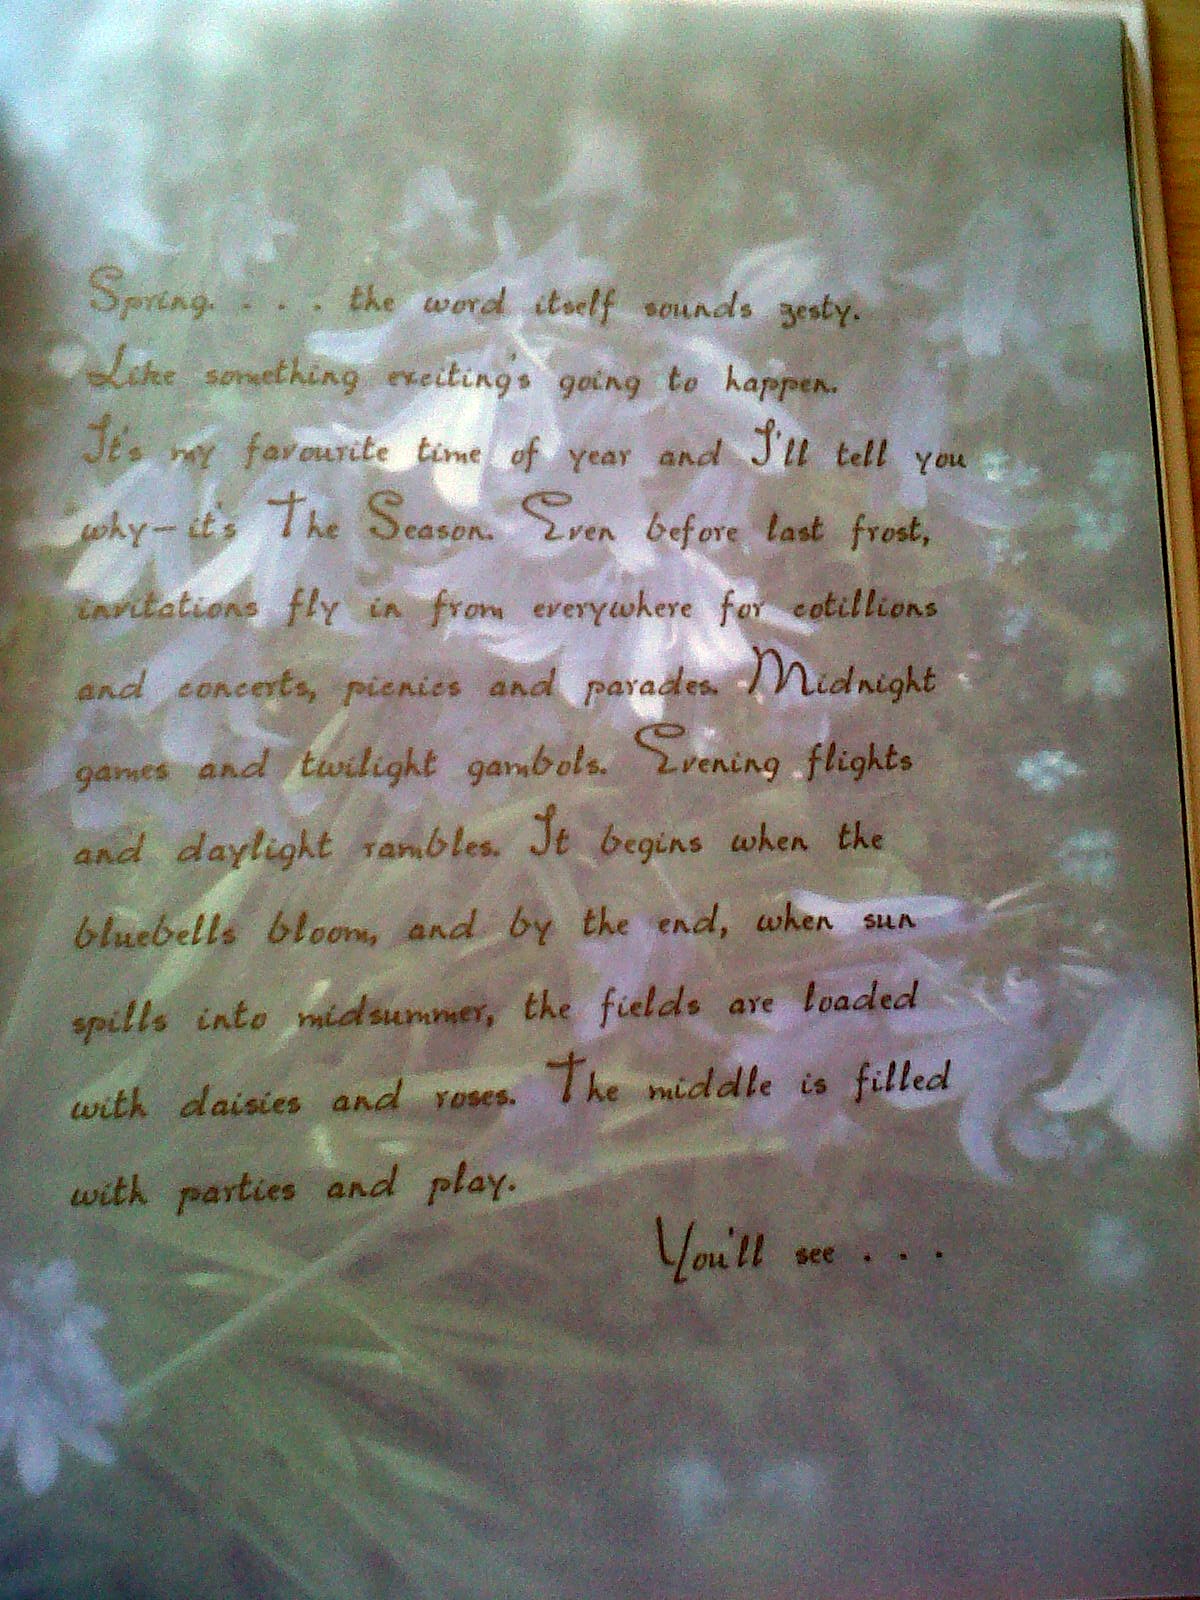 Spring. . . . the word itself sounds zesty.
Like something exciting's going to happen.
It's my favourite time of year and I'll tell you
why—it's The Season. Even before last frost,
invitations fly in from everywhere for cotillions
and concerts, picnics and parades. Midnight
games and twilight gambols. Evening flights
and daylight rambles. It begins when the
bluebells bloom, and by the end, when sun
spills into midsummer, the fields are loaded
with daisies and roses. The middle is filled
with parties and play.
You'll see . . .